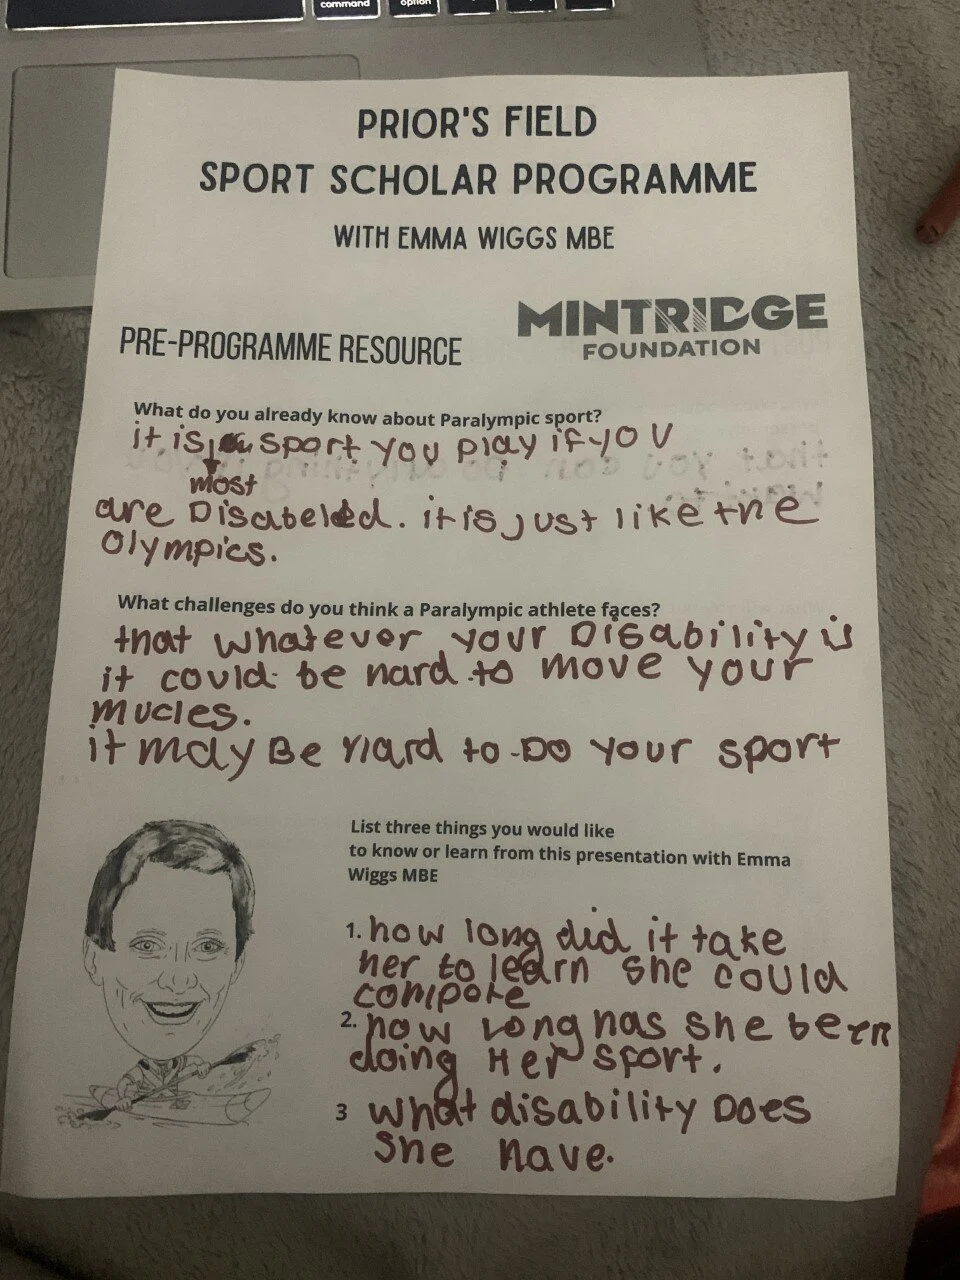 command
option
PRIOR'S FIELD
SPORT SCHOLAR PROGRAMME
WITH EMMA WIGGS MBE
MINTRIDGE
FOUNDATION
PRE-PROGRAMME RESOURCE
What do you already know about Paralympic sport?
it is a sport you play if you
most
are Disabeled. it is just like the
Olympics.
What challenges do you think a Paralympic athlete faces?
that whatever your Disability is
it could be hard to move your
mucles.
it may Be Hard to Do your sport
List three things you would like
to know or learn from this presentation with Emma
Wiggs MBE
1. how long did it take
her to learn she could
compete
2. how long has she been
doing Her sport.
3 What disability Does
She have.